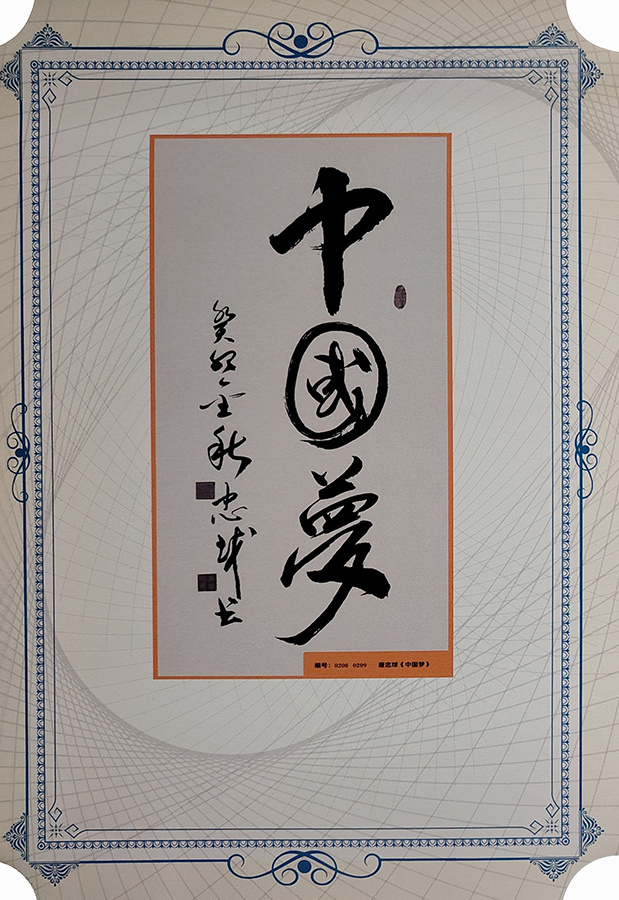 中國夢
癸卯金秋忠球书
编号：0208 0209 忠球《中国梦》